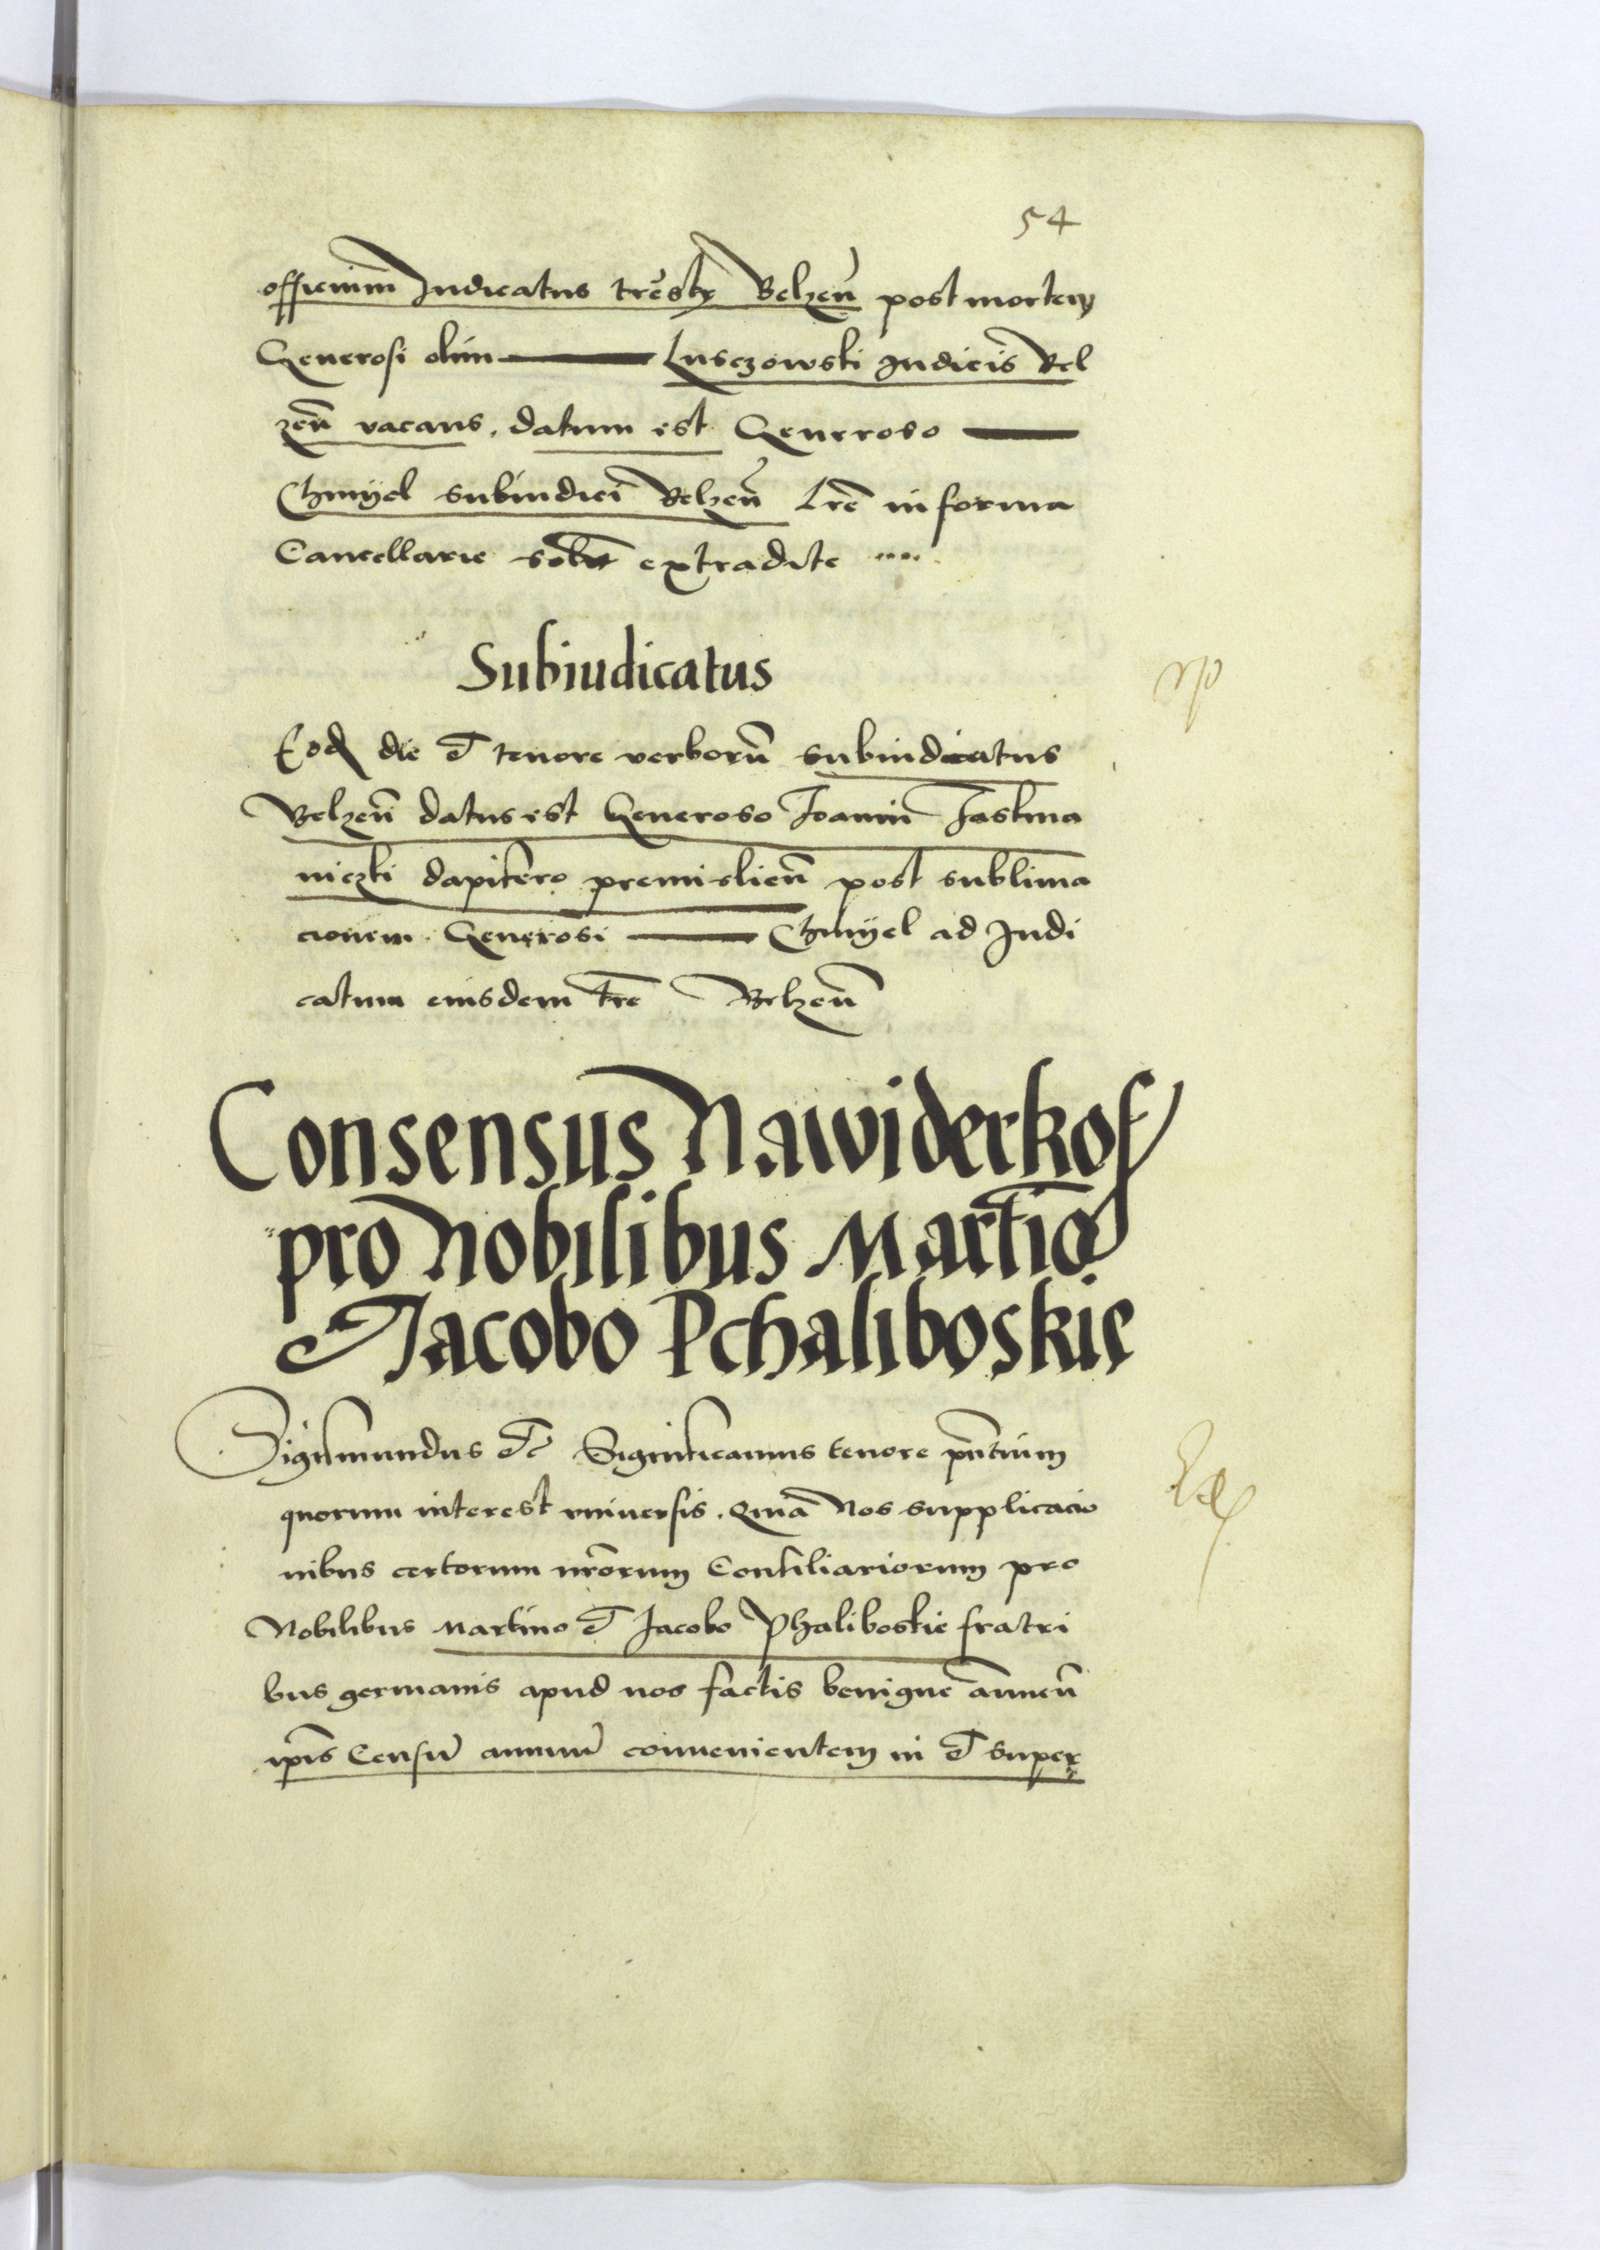 54
officium Iudicatus trēstr Belzeñ post mortem
Generosi olim Lusczowski Iudicis Bel
zeñ vacans. datum est Generoso
Chmyel subiudici Belzeñ Lrē in forma
Cancellarie extradite
Subiudicatus
Eod die et tenore verborū subiudicatus
Belzeñ datus est Generoso Ioanni
niczki dapifero premislieñ post sublima
cionem Generosi Chmyel ad Iudi
catum eiusdem trē Belzeñ
Consensus Nawiderkof
pro Nobilibus Martīo
et Jacobo Pchaliboskie
Sigismundus etc Significamus tenore pñtium
quorum interest vniversis. Quia Nos supplicacio
nibus certorum nrōrum Consiliariorum pro
Nobilibus Martino et Jacobo Phaliboskie fratri
bus germanis apud nos factis benigne annueñ
ipīs Censū annuū convenientem in et super